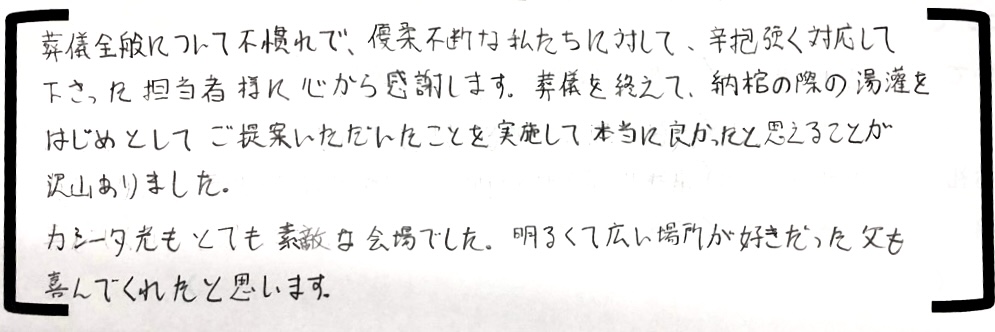 葬儀全般について不慣れで、優柔不断な私たちに対して、辛抱強く対応して
下さった担当者様に心から感謝します。葬儀を終えて、納棺の際の湯灌を
はじめとしてご提案いただいたことを実施して本当に良かったと思えることが
沢山ありました。
カシータ光もとても素敵な会場でした。明るくて広い場所が好きだった父も
喜んでくれたと思います。